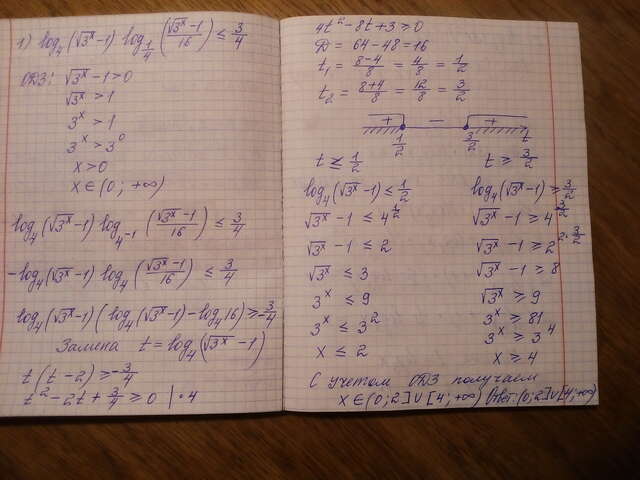 1) log₄(√3ˣ-1) log_{1/4} ((√3ˣ-1)/16) ≤ 3/4
ОДЗ: √3ˣ-1>0
√3ˣ > 1
3ˣ > 1
3ˣ > 3⁰
x>0
x∈(0; +∞)
log₄(√3ˣ-1) log_{4⁻¹} ((√3ˣ-1)/16) ≤ 3/4
-log₄(√3ˣ-1) log₄ ((√3ˣ-1)/16) ≤ 3/4
log₄(√3ˣ-1)(log₄(√3ˣ-1)-log₄16) ≥ -3/4
Замена t = log₄(√3ˣ-1)
t(t-2) ≥ -3/4
t²-2t+3/4 ≥ 0 |·4
4t²-8t+3 ≥ 0
D = 64-48=16
t₁ = (8-4)/8 = 4/8 = 1/2
t₂ = (8+4)/8 = 12/8 = 3/2
+ − +
1/2 3/2 t
t ≤ 1/2 t ≥ 3/2
log₄(√3ˣ-1) ≤ 1/2 log₄(√3ˣ-1) ≥ 3/2
√3ˣ-1 ≤ 4^{1/2} √3ˣ-1 ≥ 4^{3/2}
√3ˣ-1 ≤ 2 √3ˣ-1 ≥ 2^{2·3/2}
√3ˣ ≤ 3 √3ˣ-1 ≥ 8
3ˣ ≤ 9 √3ˣ ≥ 9
3ˣ ≤ 3² 3ˣ ≥ 81
x ≤ 2 3ˣ ≥ 3⁴
x ≥ 4
С учетом ОДЗ получаем
x∈(0;2]∪[4;+∞) Ответ: (0;2]∪[4;+∞)